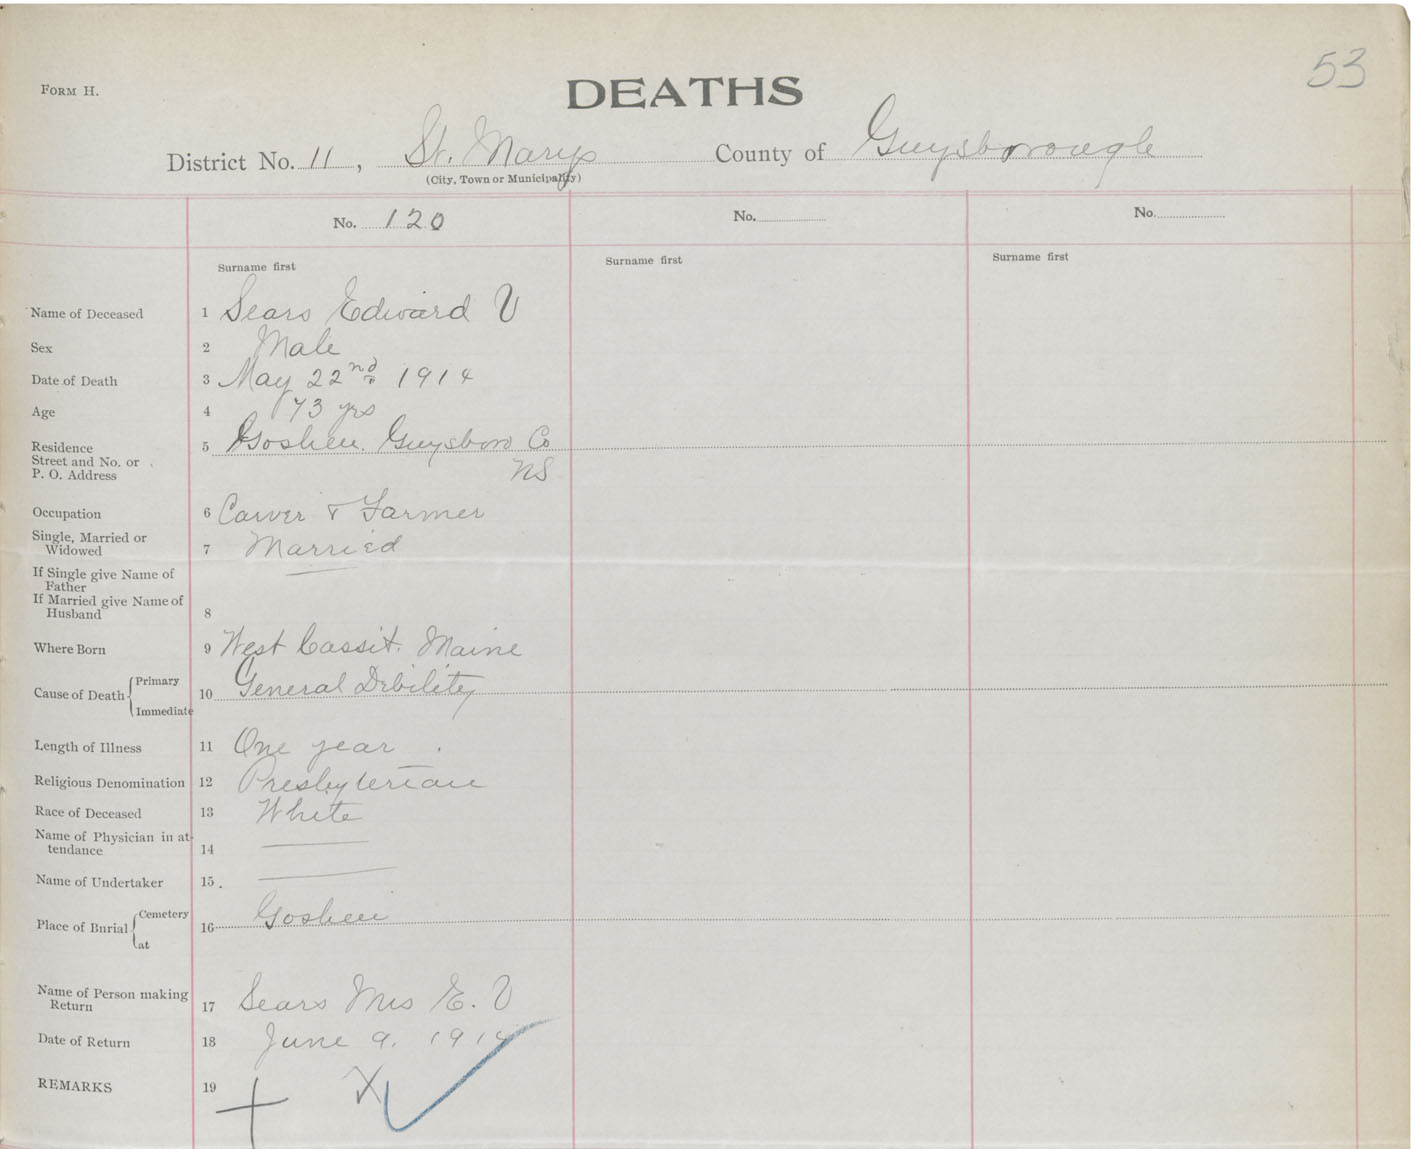 53
FORM H.
DEATHS
District No. 11, St. Marys County of Guysborough
(City, Town or Municipality)
No. 120 No. No.
Surname first Surname first Surname first
Name of Deceased 1 Sears Edward V
Sex 2 Male
Date of Death 3 May 22nd 1914
Age 4 73 yrs
Residence 5 Goshen. Guysboro Co
Street and No. or NS
P. O. Address
Occupation 6 Carver & Farmer
Single, Married or
Widowed 7 Married
If Single give Name of
Father
If Married give Name of
Husband 8
Where Born 9 West Cassit. Maine
Cause of Death { Primary 10 General Debility
Immediate
Length of Illness 11 One year.
Religious Denomination 12 Presbyterian
Race of Deceased 13 White
Name of Physician in at-
tendance 14
Name of Undertaker 15.
Place of Burial { Cemetery 16 Goshen
at
Name of Person making
Return 17 Sears Mrs E. V
Date of Return 18 June 9. 1914
REMARKS 19 X